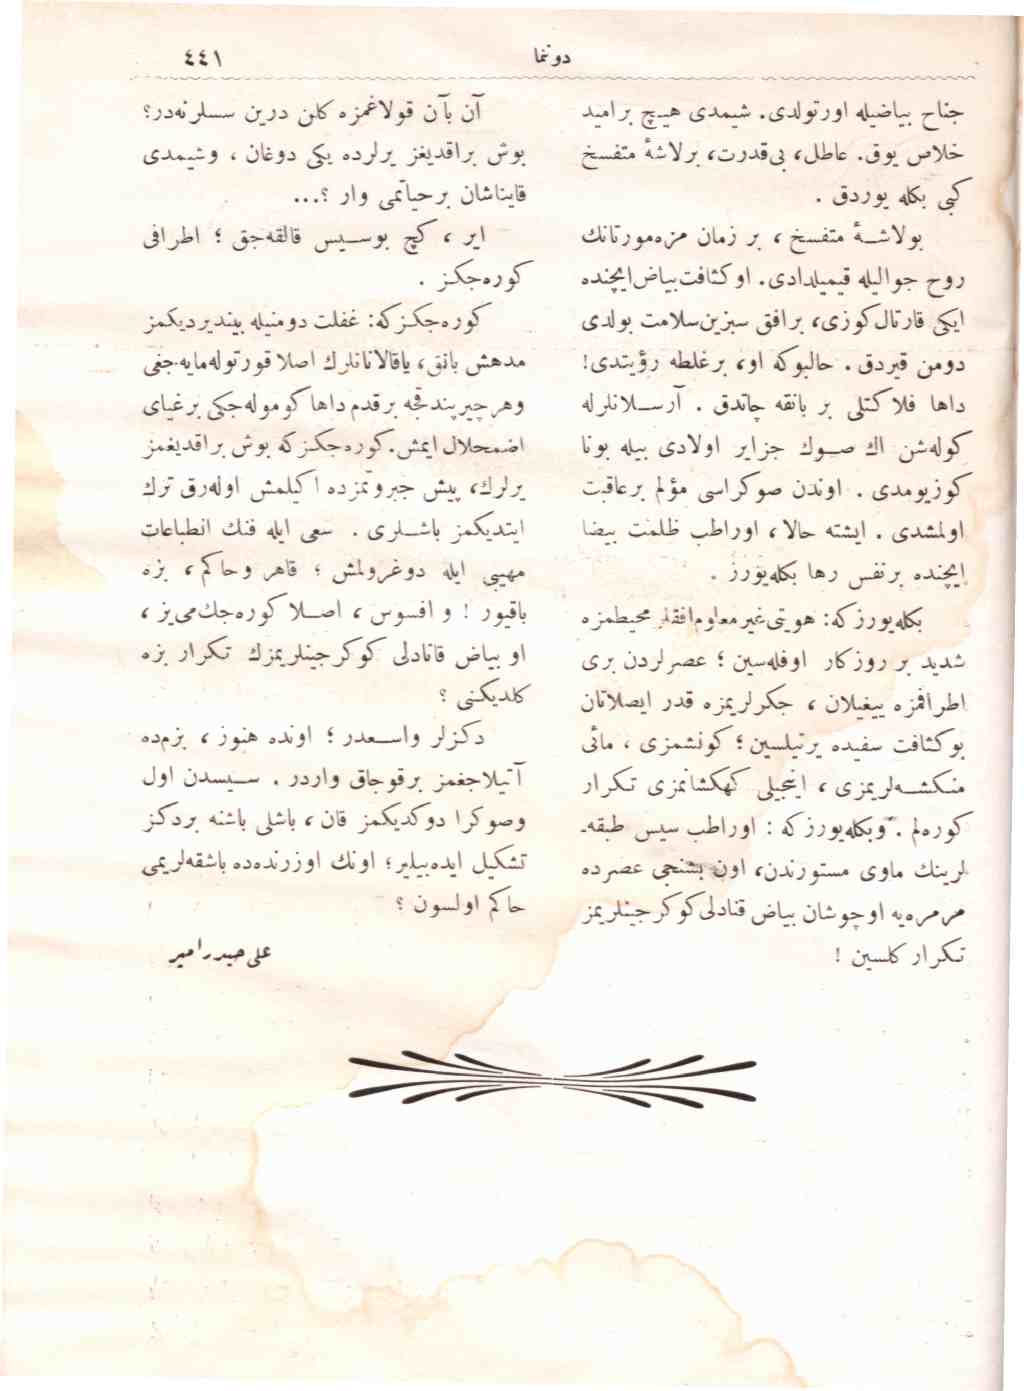 دوننما
٤٤١
جناح بیاضیله اورتولدی. شیمدی هیـچ برامید
خلاص یوق. عاطل، بی‌قدرت، برلاشهٔ متفسخ
کبی بکله یوردق .
بولاشـهٔ متفسخ ، بر زمان مزه‌مورتانك
روح جوالیله قیمیلدادی. اوکثافت‌بیاض‌ایچنده
ایکی قارتال‌کوزی، برافق سبزین‌سلامت بولدی
دومن قیردق . حالبوکه او، برغلطه رؤیتدی!
داها فلاکتلی بر بانقه چاتدق . آرسـلانلرله
کوله‌شن اك صـوك جزایر اولادی بیله بونا
کوزیومدی . اوندن صوکراسی مؤلم برعاقبت
اولمشدی . ایشته حالا ، اوراطب ظلمت بیضا
ایچنده برنفس رها بکله‌یورز .
بکله‌یورزکه: هویتی‌غیرمعلوم‌افقلر محیطمزه
شدید بر روزکار اوفله‌سین ؛ عصرلردن بری
اطرافمزه ییغیلان ، جکرلریمزه قدر ایصلاتان
بوکثافت سفیده یرتیلسین ؛ کونشمزی ، مائی
منکشـه‌لریمزی ، اینجیلی کهکشانمزی تکرار
کوره‌لم . وبکله‌یورزکه : اوراطب سیس طبقه‌ـ
لرینك ماوی مستورندن، اون بشنجی عصرده
مرمره‌یه اوچوشان بیاض قنادلی کوکرجینلریمز
تکرار کلسین !
آن بآن قولاغمزه کلن درین سسلرنه‌در؟
بوش براقدیغز یرلرده یکی دوغان ، وشیمدی
قایناشان برحیاتمی وار ؟...
ایر ، کچ بوسـیس قالقه‌جق ؛ اطرافی
کوره‌جکز .
کوره‌جکزکه: غفلت دومنیله بیندیردیکمز
مدهش بانق، یاقالانانلرك اصلا قورتوله‌مایه‌جغی
وهرچیرپندقجه برقدم داها کوموله‌جکی برغیای
اضمحلال ایمش.کوره‌جکزکه بوش براقدیغمز
یرلرك، پیش جبروتمزده اکیلمش اوله‌رق ترك
ایتدیکمز باشـلری . سعی ایله فنك انطباعات
مهیبی ایله دوغرولمش ؛ قاهر وحاکم ، بزه
باقیور ! و افسوس ، اصـلا کوره‌جك‌می‌یز ،
او بیاض قانادلی کوکرجینلریمزك تکرار بزه
کلدیکنی ؟
دکزلر واسـعدر ؛ اونده هنوز ، بزمده
آتیلاجغمز برقوجاق واردر . سـیسدن اول
وصوکرا دوکدیکمز قان ، باشلی باشنه بردکز
تشکیل ایده‌بیلیر؛ اونك اوزرنده‌ده باشقه‌لریمی
حاکم اولسون ؟
علی حیدر امیر